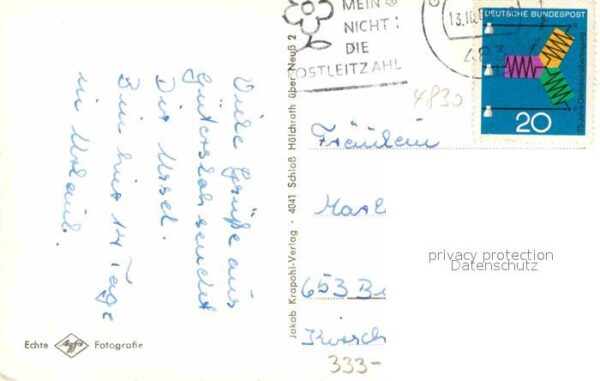 MEIN
NICHT
DIE
POSTLEITZAHL
13.10.
483
DEUTSCHE BUNDESPOST
25 Jahre Drehstromübertragung
20
4830
Viele Grüße aus
Gütersloh sendet
Dir Ursel.
Bin hier 14 Tage
in Urlaub.
Jakob Krapohl-Verlag · 4041 Schloß Hülchrath über Neuß 2
Fräulein
653 Bi
Kirsch
333-
Echte Agfa Fotografie
privacy protection
Datenschutz